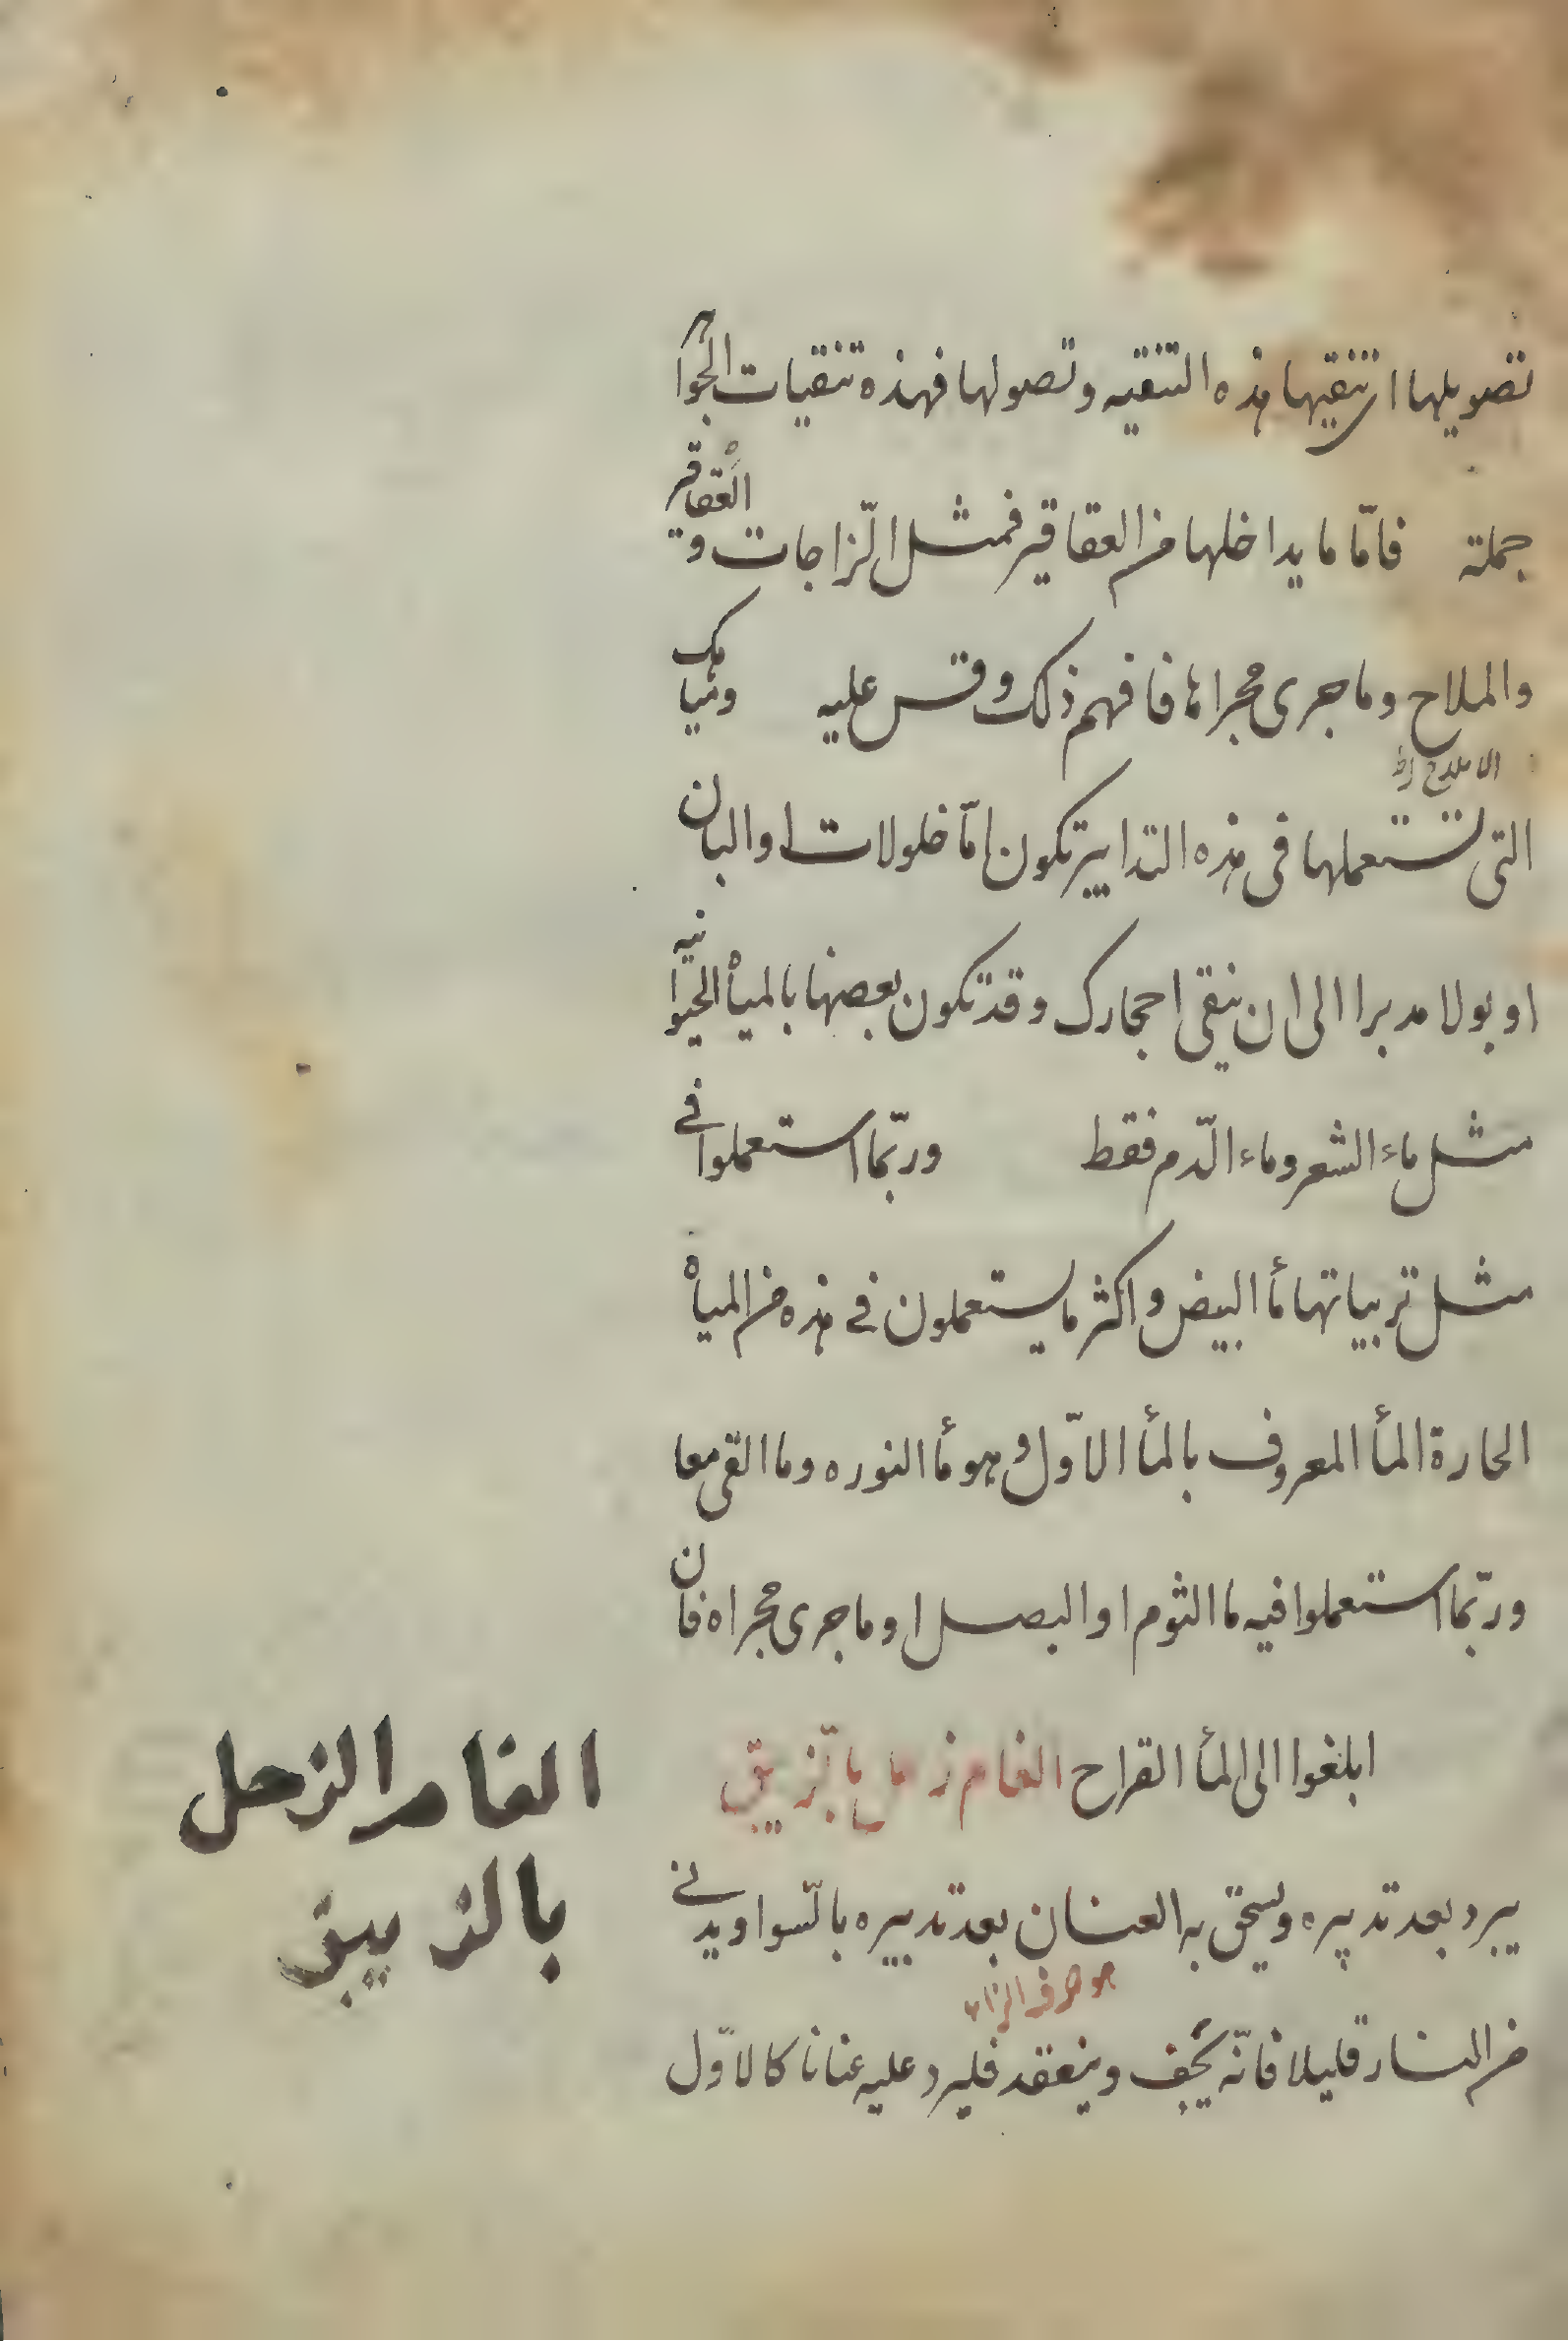 تصويلها ان تنقيها هذه التنقيه وتصولها فهذه تنقيات الجوا
جملة فامّا ما يداخلها من العقاقير فمثل الزّاجات و العقاقير
والملاح وما جرى مجراها فافهم ذلك وقس عليه ومياهك
التى تستعملها فى هذه التدابير تكون امّا خلولات او البان
او بولا مدبرا الى ان ينقى احجارك وقد تكون بعضها بالمياه الحيوانيه
مثل ماء الشعر وماء الدّم فقط وربّما استعملوا فى
مثل تربياتها مأ البيض واكثر ما يستعملون فى هذه من المياه
الحارة المأ المعروف بالمأ الاوّل وهو مأ النوره وما القى معا
وربّما استعملوا فيه ما الثوم او البصل او ما جرى مجراه فان
ابلغوا الى المأ القراح الغام زحل بالزّيبق
الغام الزحل
بالزيبق
يبرد بعد تدبيره ويسحق به العنان بعد تدبيره بالسّواد ويدنى
من النار قليلا فانّه يجف وينعقد فليرد عليه عنانا كالاوّل